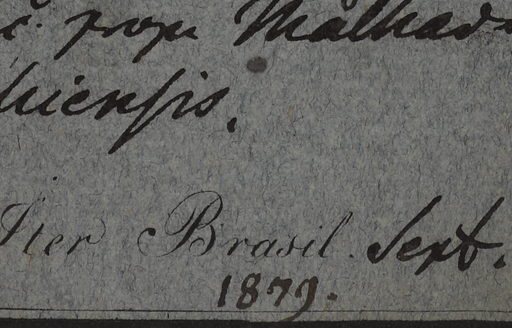 prope Malhad
hiensis.
Iter Brasil. Sept.
1879.